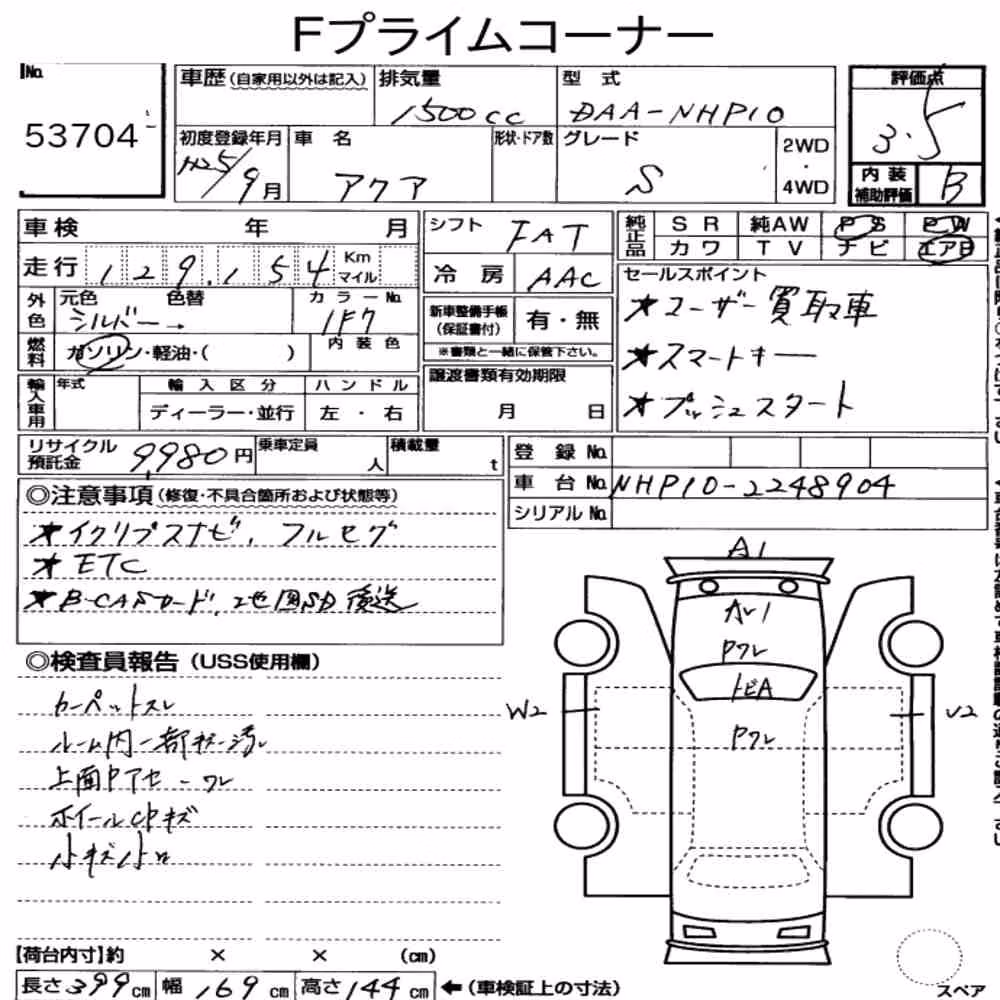 Fプライムコーナー
No. 53704
車歴(自家用以外は記入) 排気量 1500cc 型式 DAA-NHP10 評価点 3.5
初度登録年月 H25/9月 車名 アクア 形状・ドア数 グレード S 2WD・4WD 内装補助評価 B
車検 年 月 シフト FAT 純正品 SR 純AW PS PW
走行 129,154 Km マイル 冷房 AAC カワ TV ナビ エアB
外色 元色 色替 シルバー→ カラーNo. 1F7 新車整備手帳(保証書付) 有・無 セールスポイント
燃料 ガソリン・軽油・( ) 内装色 ※書類と一緒に保管下さい。 ★ユーザー買取車
輸入車用 年式 輸入区分 ハンドル 譲渡書類有効期限 ★スマートキー
ディーラー・並行 左・右 月 日 ★プッシュスタート
リサイクル預託金 9,980円 乗車定員 人 積載量 t 登録No.
車台No. NHP10-2248904
シリアルNo.
◎注意事項(修復・不具合箇所および状態等)
★イクリプスナビ、フルセグ
★ETC
★B-CASカード、地図SD後送
◎検査員報告(USS使用欄)
カーペットスレ
ルーム内一部キズ汚レ
上面Pアセ・ワレ
ホイールCPキズ
小キズ小凹
A1
AU1
Pワレ
トビA
W2 Pワレ U2
【荷台内寸】約 × × (cm)
長さ399cm 幅169cm 高さ144cm ←(車検証上の寸法)
スペア